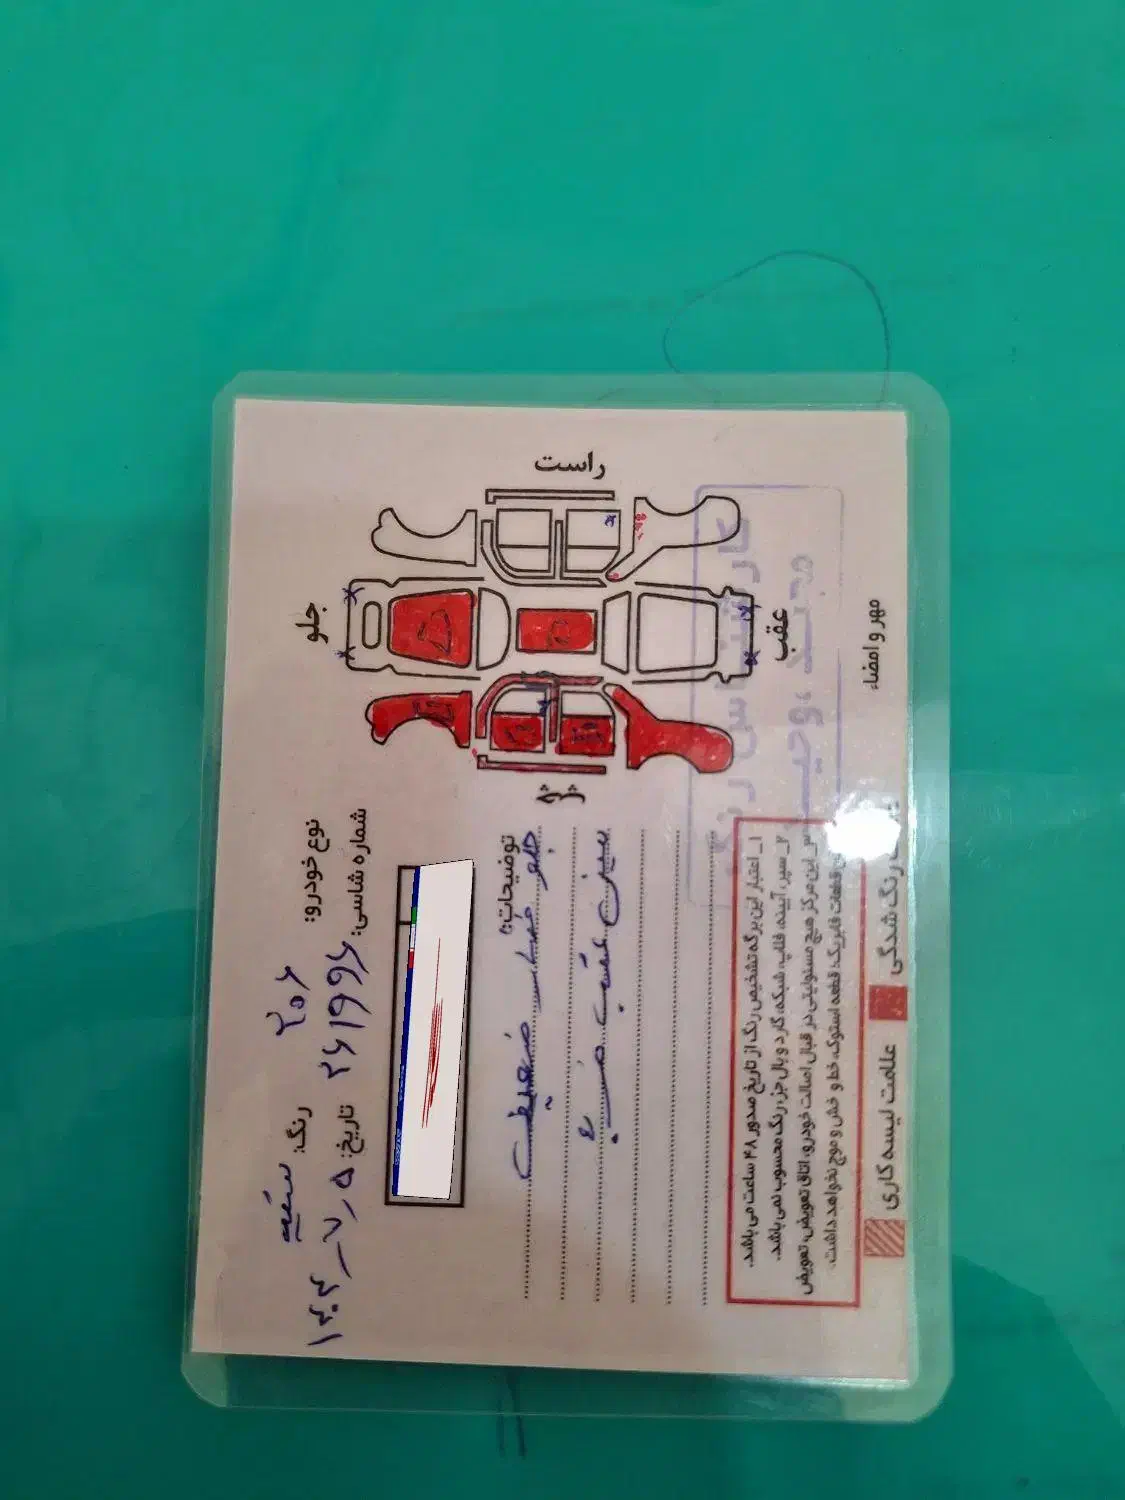 نوع خودرو: ۲۰۶ رنگ: سفید
شماره شاسی: ۲۶۱۹۹۶ تاریخ: ۱۴۰۳-۷-۵
راست
جلو
عقب
توضیحات:
جلو ضعیف
سینی عقب ضربه
۱_ اعتبار این برگه تشخیص رنگ از تاریخ صدور ۴۸ ساعت می باشد.
۲_ سپر، آیینه، قالپاق، شبکه، گارد و بال جزء رنگ محسوب نمی باشد.
۳_ این مرکز هیچ مسئولیتی در قبال اصالت خودرو، اتاق تعویض، تعویض
قطعات فابریک، قطعه استوک، خط و خش و موج نخواهد داشت.
رنگ شدگی
علامت لیسه کاری
مهر و امضاء
کارشناس رنگ